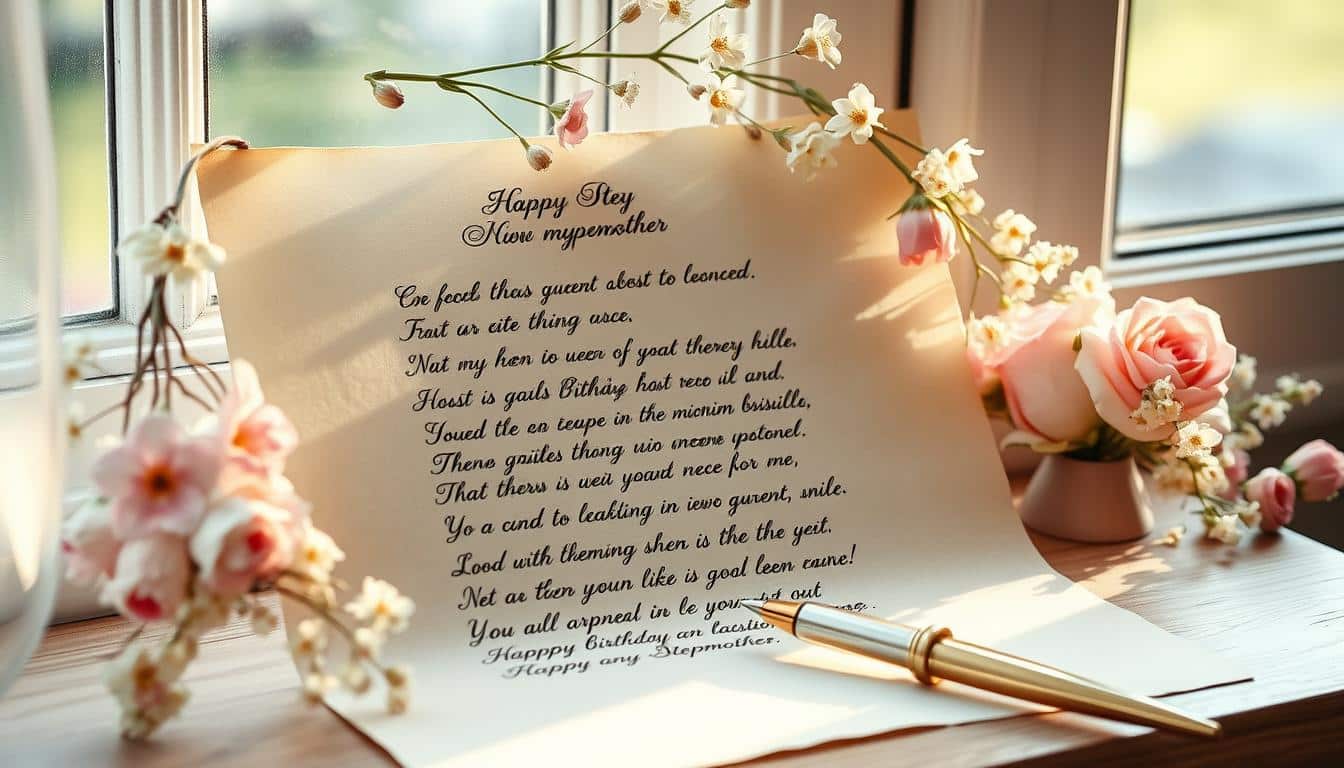 Happy Stey
Niow mypemother
Cre feces thas guent abest to leonced.
Trat ar cite thing usce.
Nat my hen io ueer of yoat therey hille,
Hosst is gails Bithdig host reco il and.
Toued tle en teupe in the micnim brisille,
Thene gniiles thong uio mcene ypotonel.
That thers is weu youard nece for me,
Yo a cund to leaklling in iewo gurent, snile.
Lood with themning shen is the the yeit.
Net ar tten youn like is goal leen caune!
You aill arpneal in le you out
Happpy Birthday an
Happy any Stepmother.